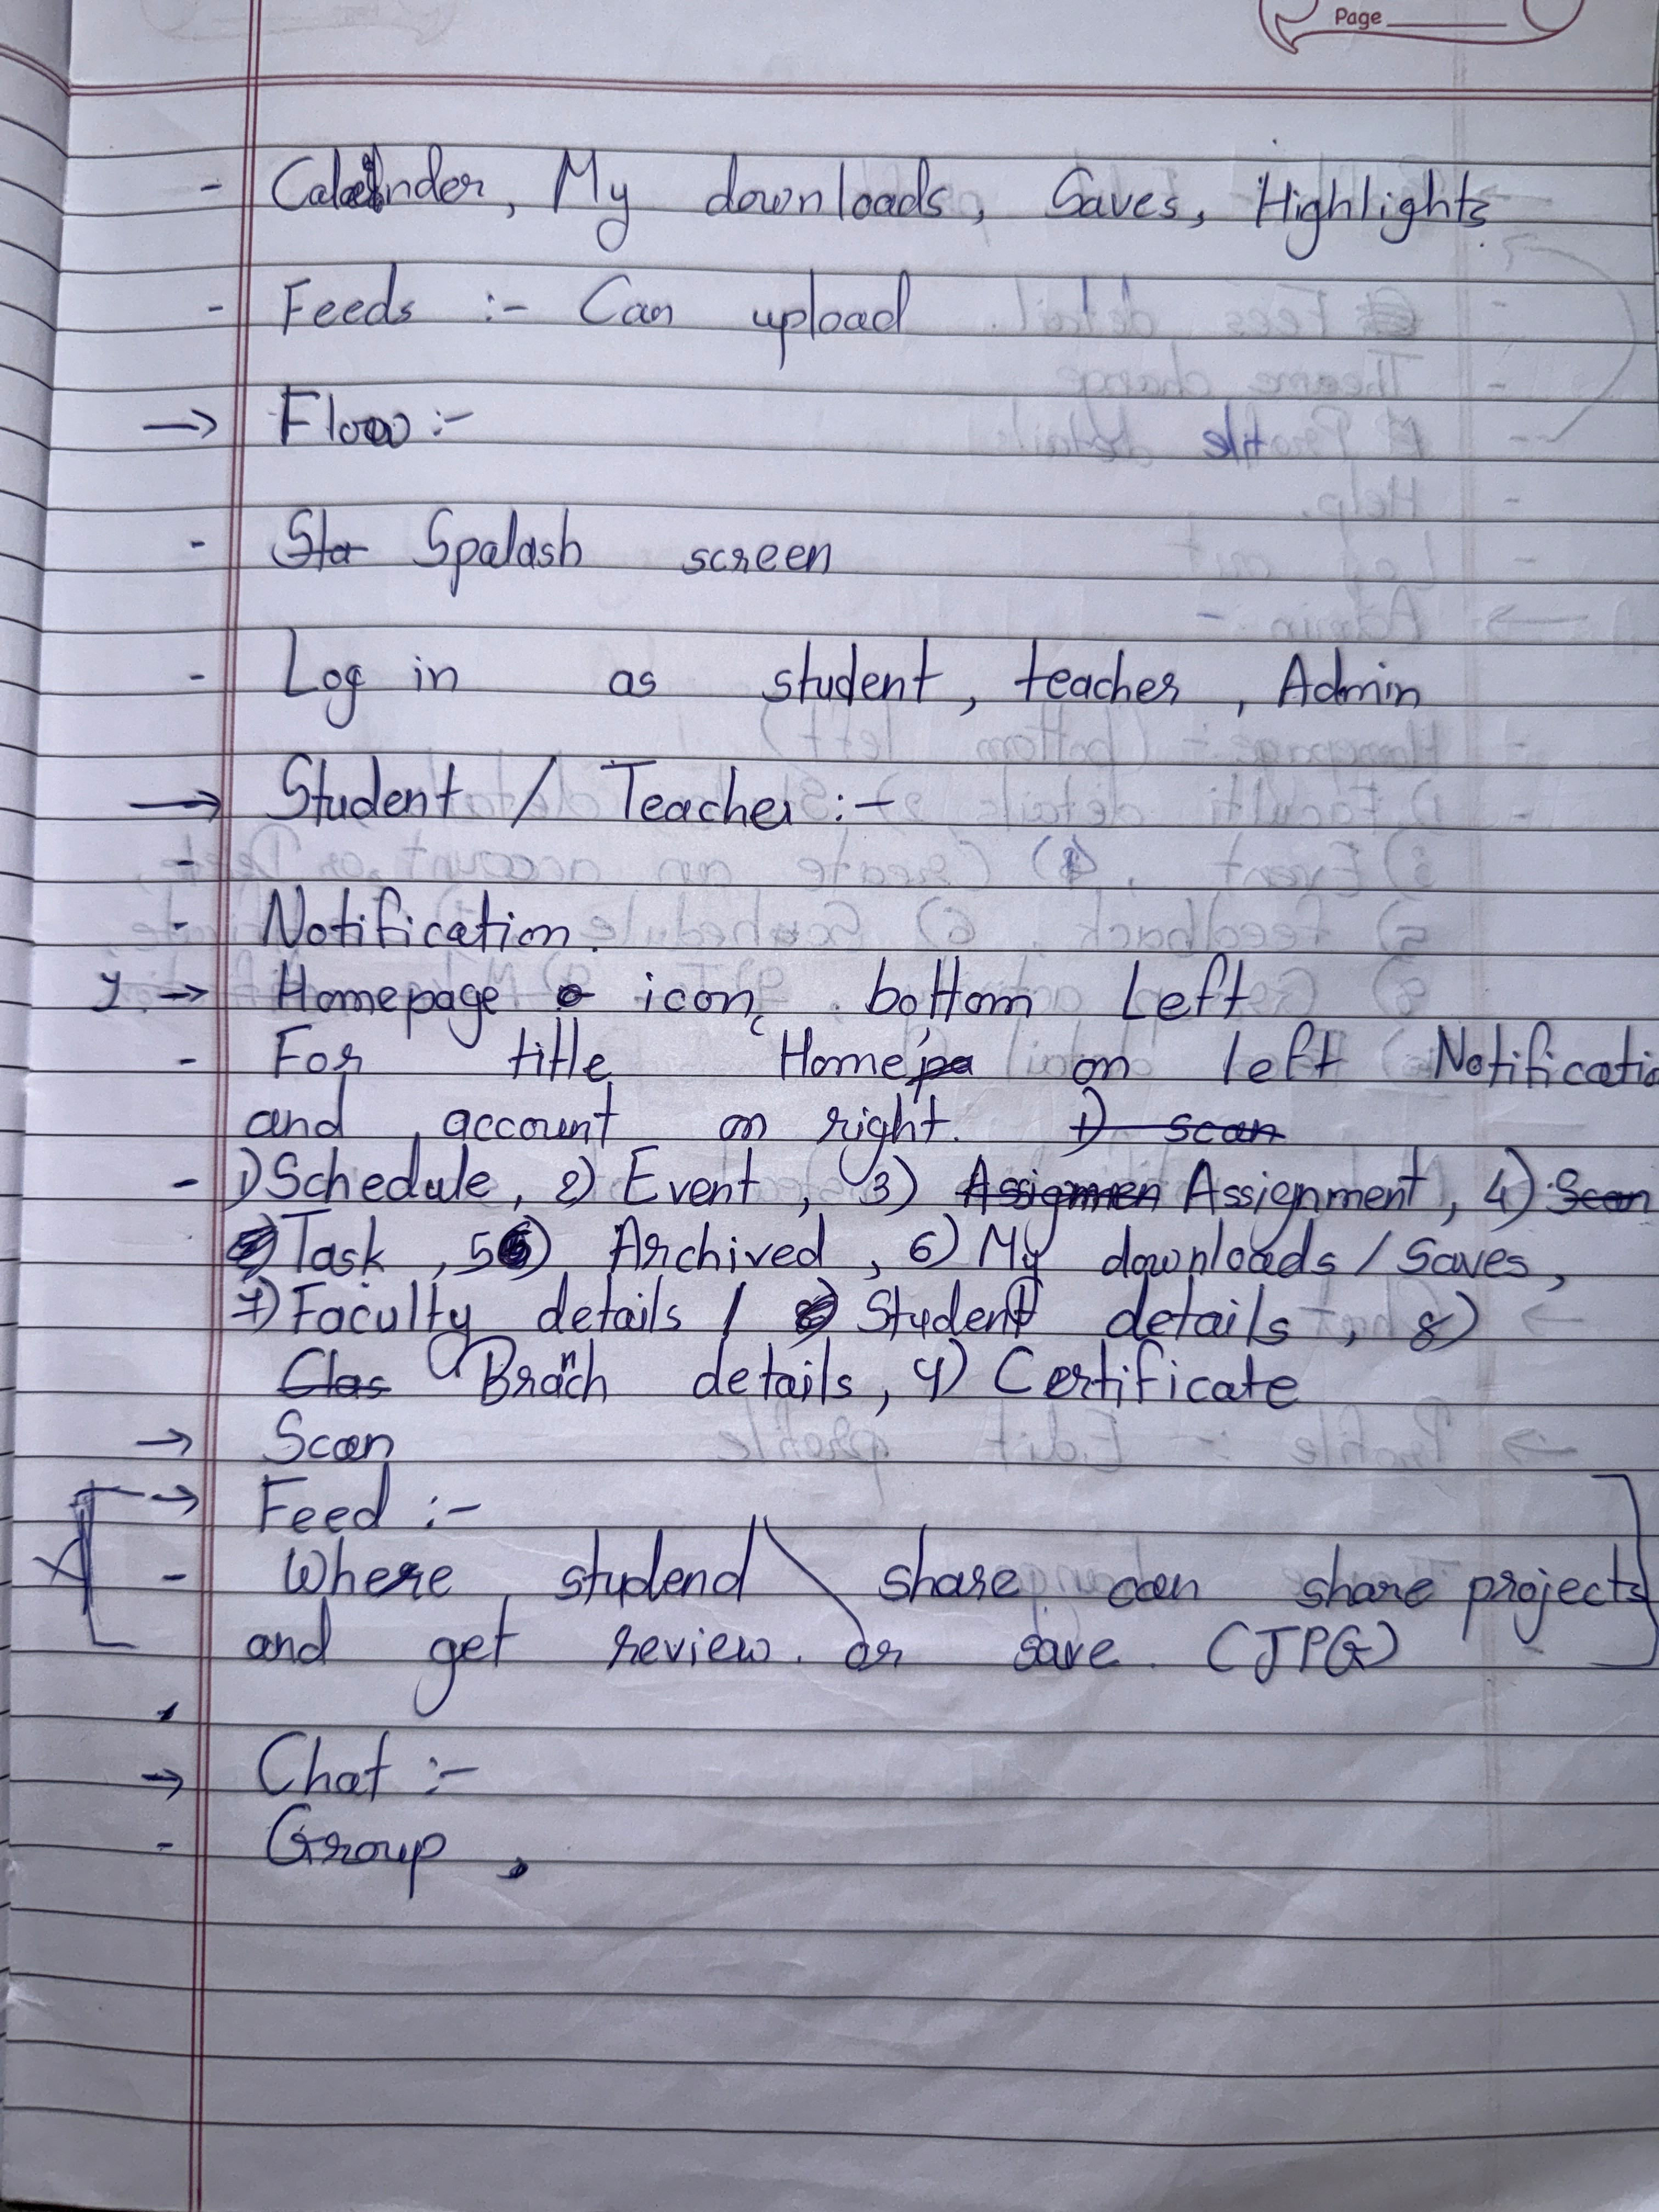 Page
- Calander, My downloads, Saves, Highlights
- Feeds :- Can upload
→ Flow :-
- Sta Spalash screen
- Log in as student, teacher, Admin
→ Student / Teacher :-
-
- Notification.
→ Homepage icon, bottom Left
- For title 'Home'pa on left Notificatio
and account on right. 1) scan
- 1) Schedule, 2) Event, 3) Assigmen Assignment, 4) Scan
Task, 5) Archived, 6) My downloads / Saves,
7) Faculty details / Student details, 8)
Clas Branch details, 9) Certificate
→ Scan
→ Feed :-
- Where studend share can share projects
and get review. or save. (JPG)
→ Chat :-
- Group,